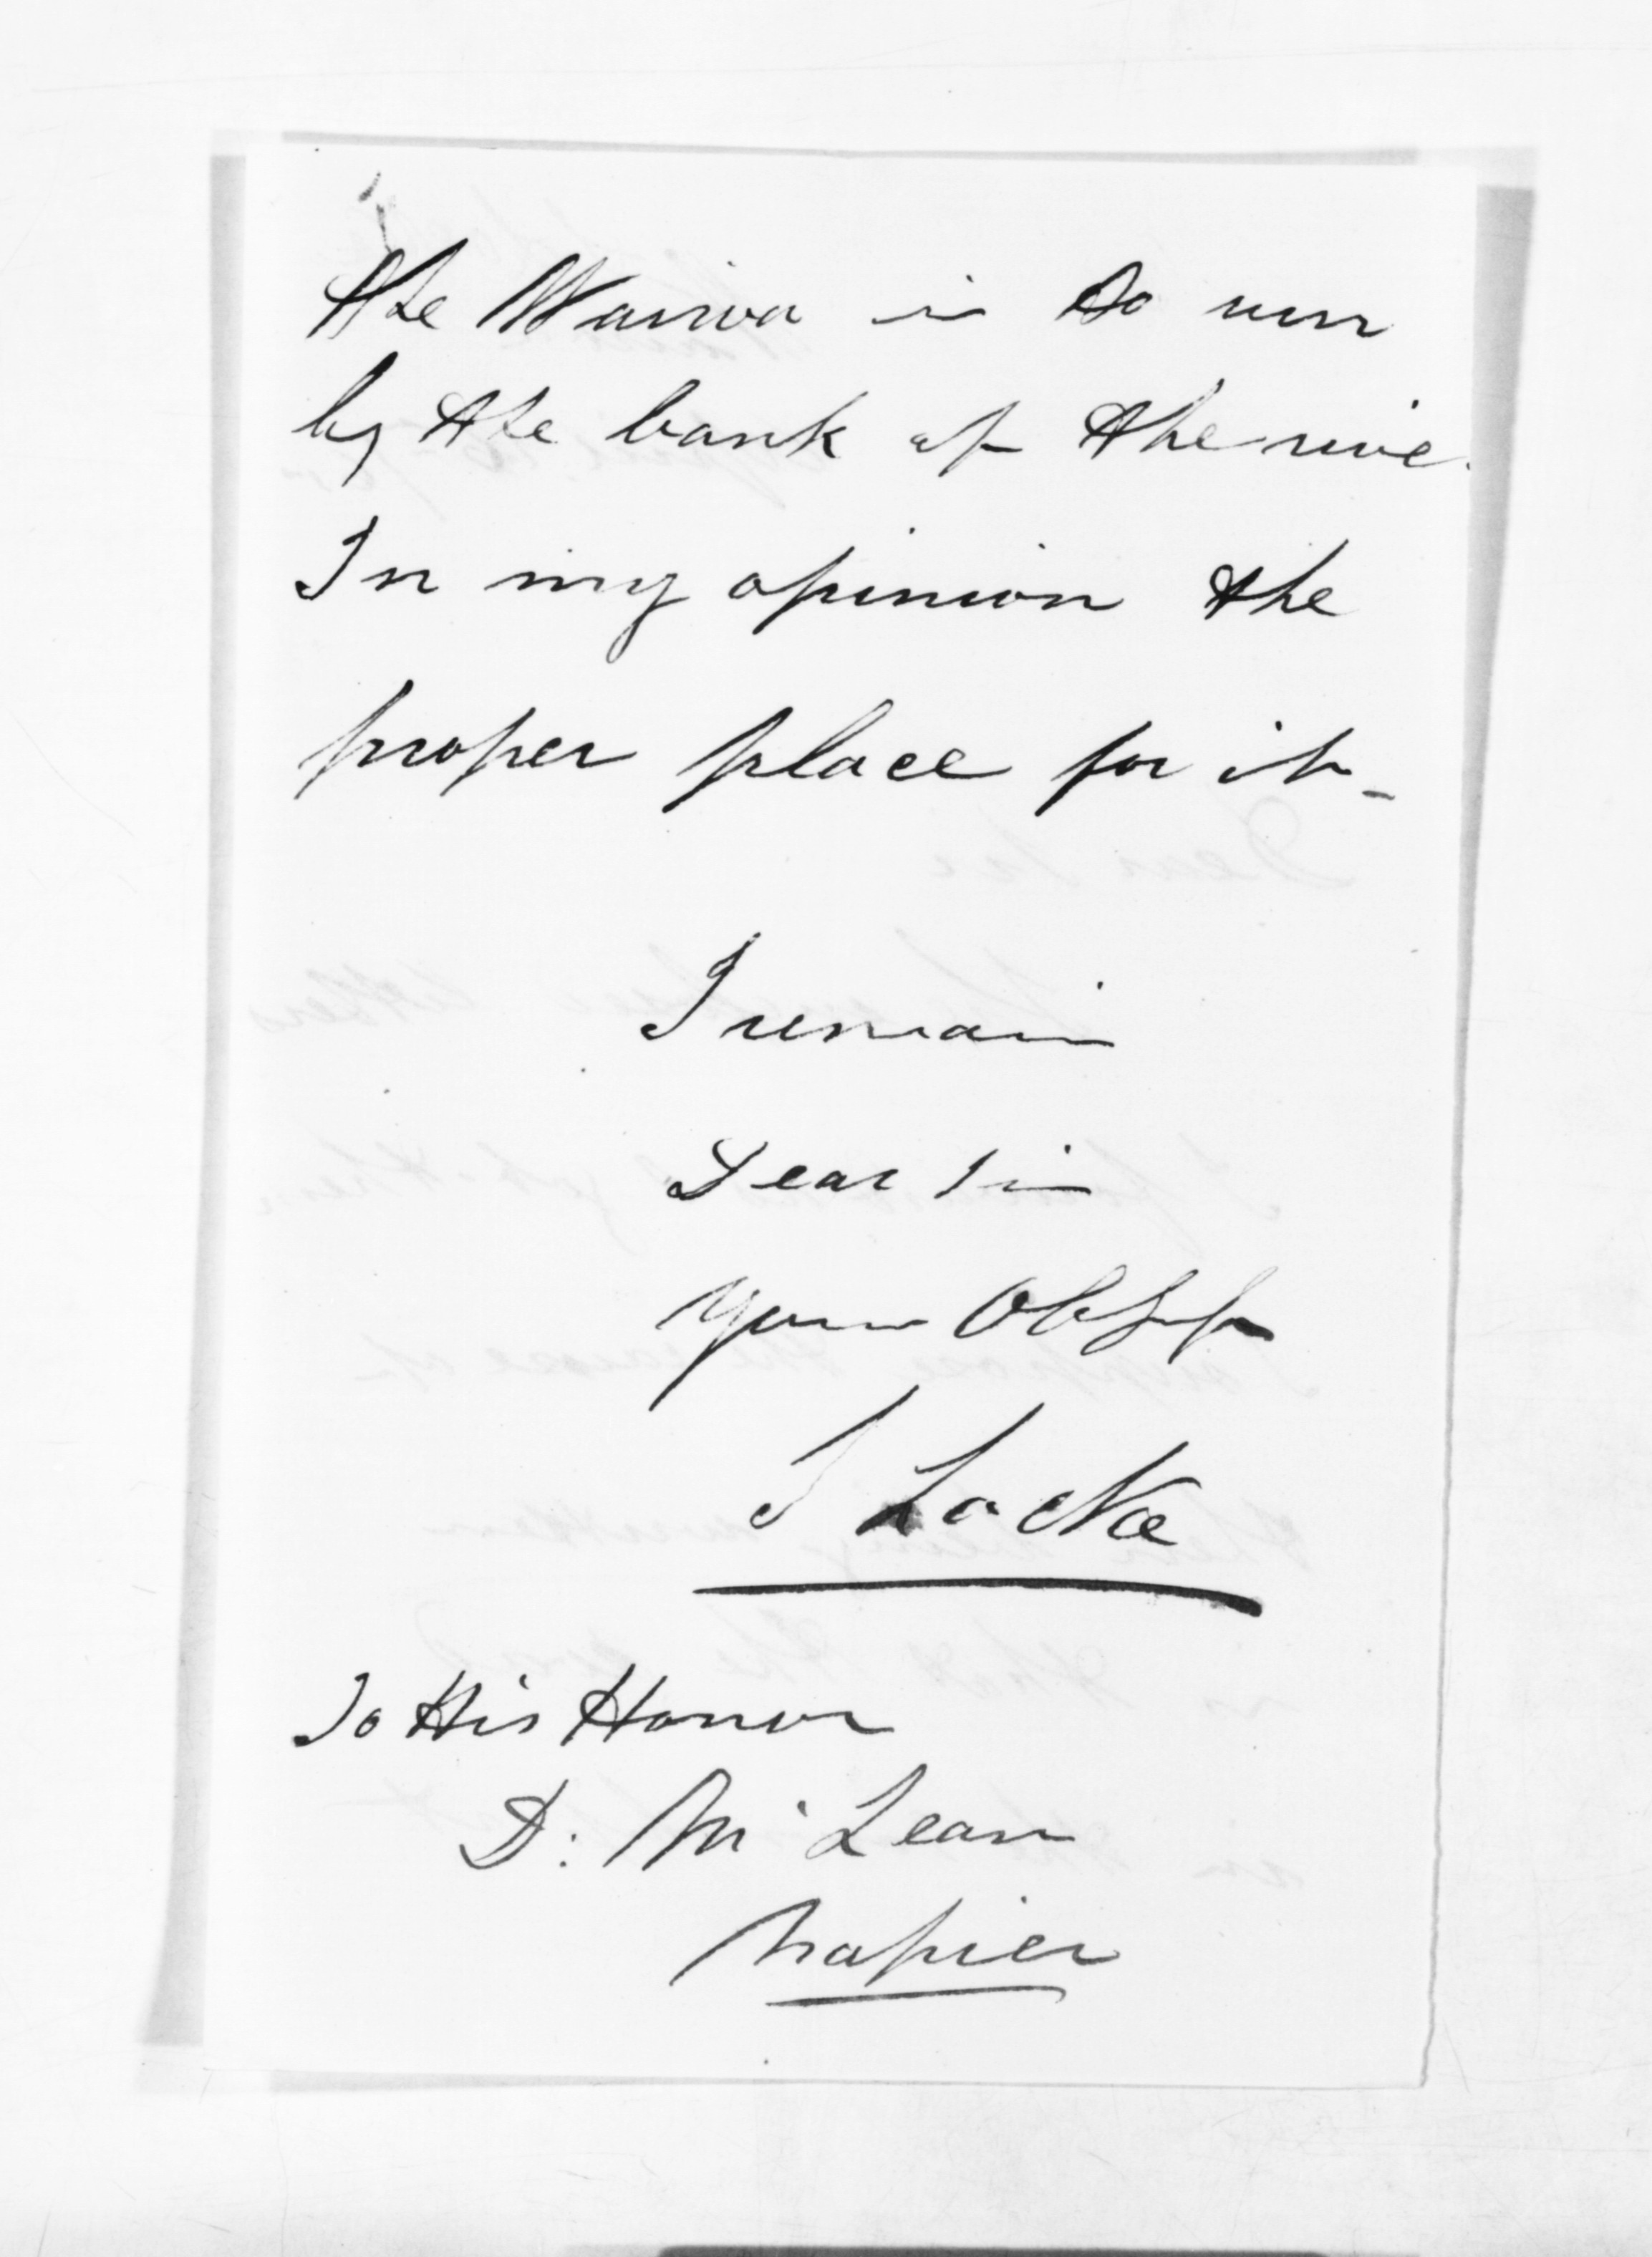 the Wairoa is to run
by the bank of the rive
In my opinion the
proper place for it -
I remain
Dear Sir
Your Obdt
S Locke
To His Honor
D: McLean
Napier